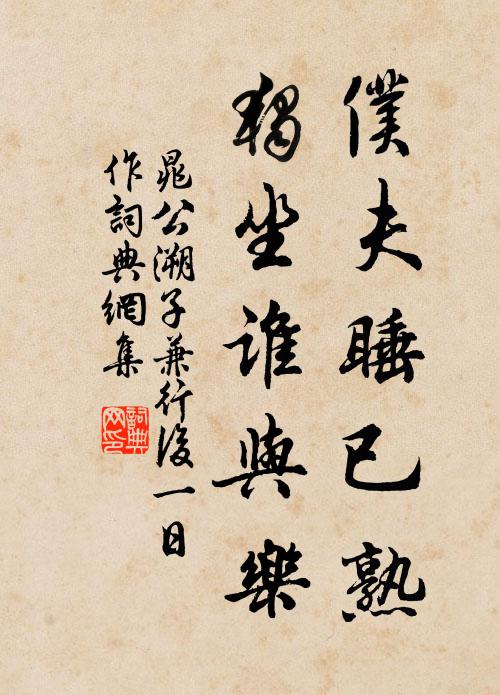 僕夫睡已熟
獨坐誰與樂
晁公溯子兼行後一日
作詞典網集
詞典網印